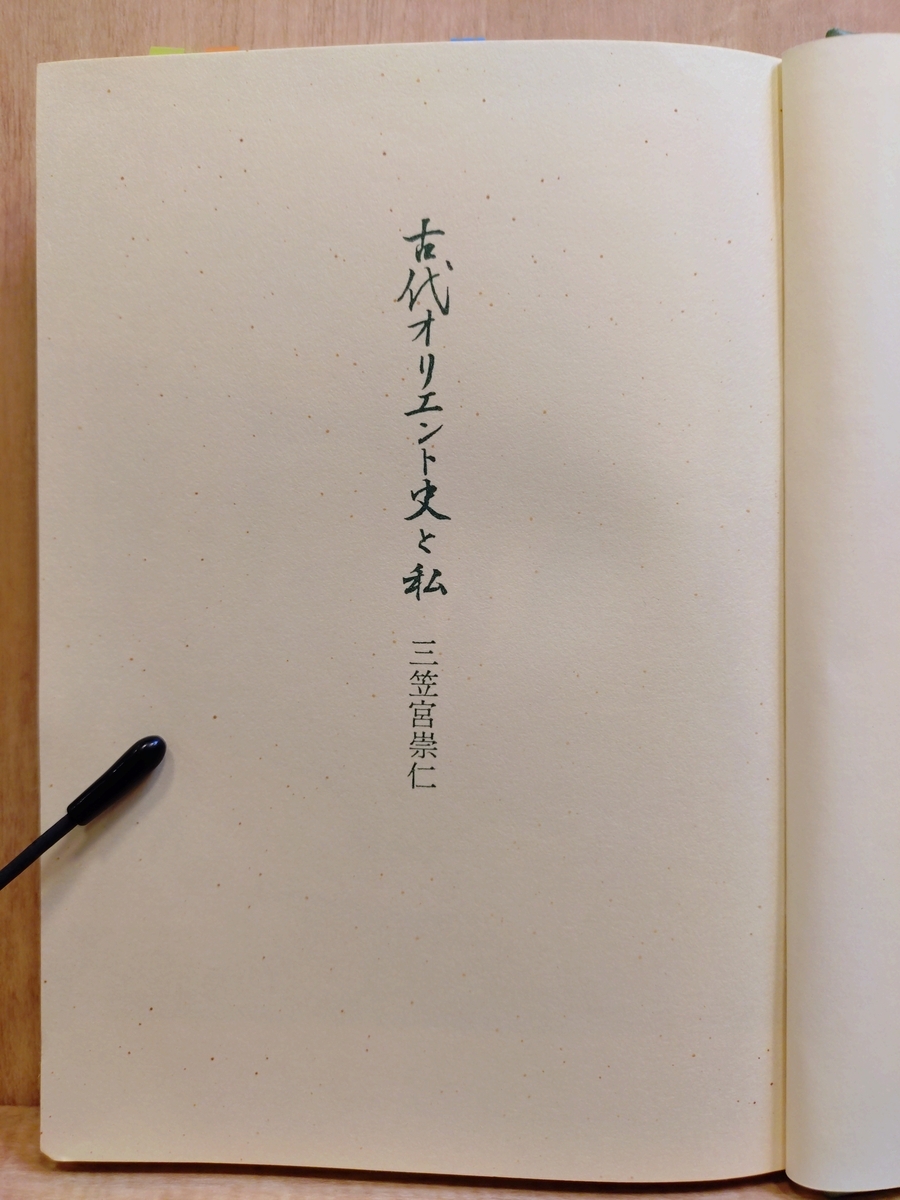 古代オリエント史と私 三笠宮崇仁